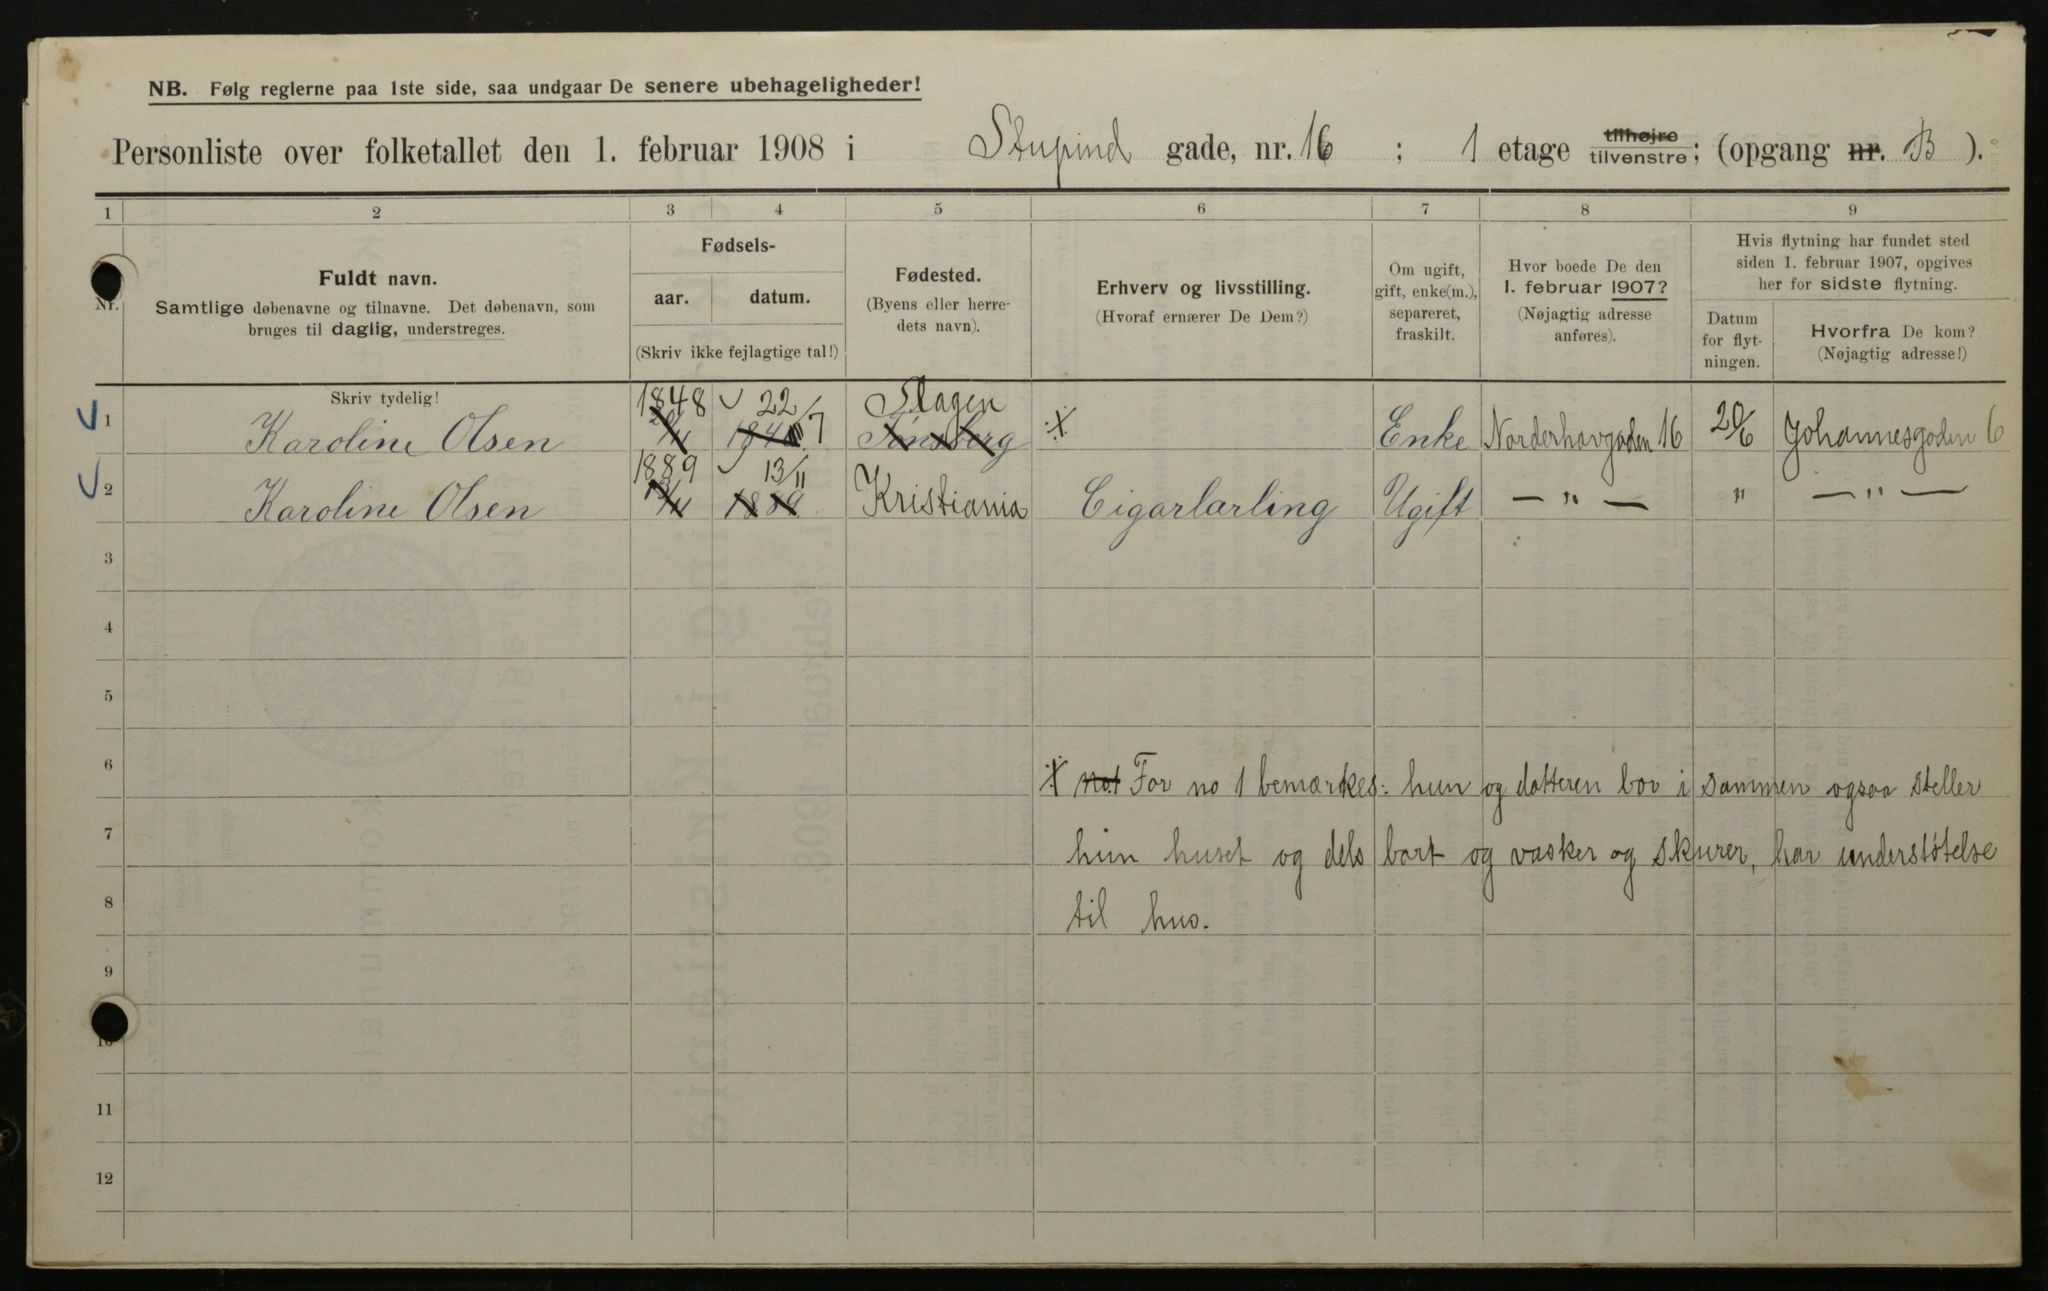 NB. Følg reglerne paa 1ste side, saa undgaar De senere ubehageligheder!
Personliste over folketallet den 1. februar 1908 i Stupind gade, nr. 16 ; 1 etage tilhøjre tilvenstre; (opgang nr. B ).
1 2 3 4 5 6 7 8 9
Nr.
Fuldt navn.
Samtlige døbenavne og tilnavne. Det døbenavn, som
bruges til daglig, understreges.
Fødsels-
aar. datum.
(Skriv ikke fejlagtige tal!)
Fødested.
(Byens eller herre-
dets navn).
Erhverv og livsstilling.
(Hvoraf ernærer De Dem?)
Om ugift,
gift, enke(m.),
separeret,
fraskilt.
Hvor boede De den
1. februar 1907?
(Nøjagtig adresse
anføres).
Hvis flytning har fundet sted
siden 1. februar 1907, opgives
her for sidste flytning.
Datum
for flyt-
ningen.
Hvorfra De kom?
(Nøjagtig adresse!)
Skriv tydelig!
1848 22/7 Slagen
1 Karoline Olsen Tønsberg Enke Norderhovgaden 16 20/6 Johannesgaden 6
1889 13/11
2 Karoline Olsen 1889 Kristiania Cigarlarling Ugift — " — " — " —
3
4
5
6 no1 For no 1 bemærkes: hun og datteren bor i sammen ogsaa steller
7 hun huset og dels bort og vasker og skurer, har understøtelse
8 til hus.
9
10
11
12